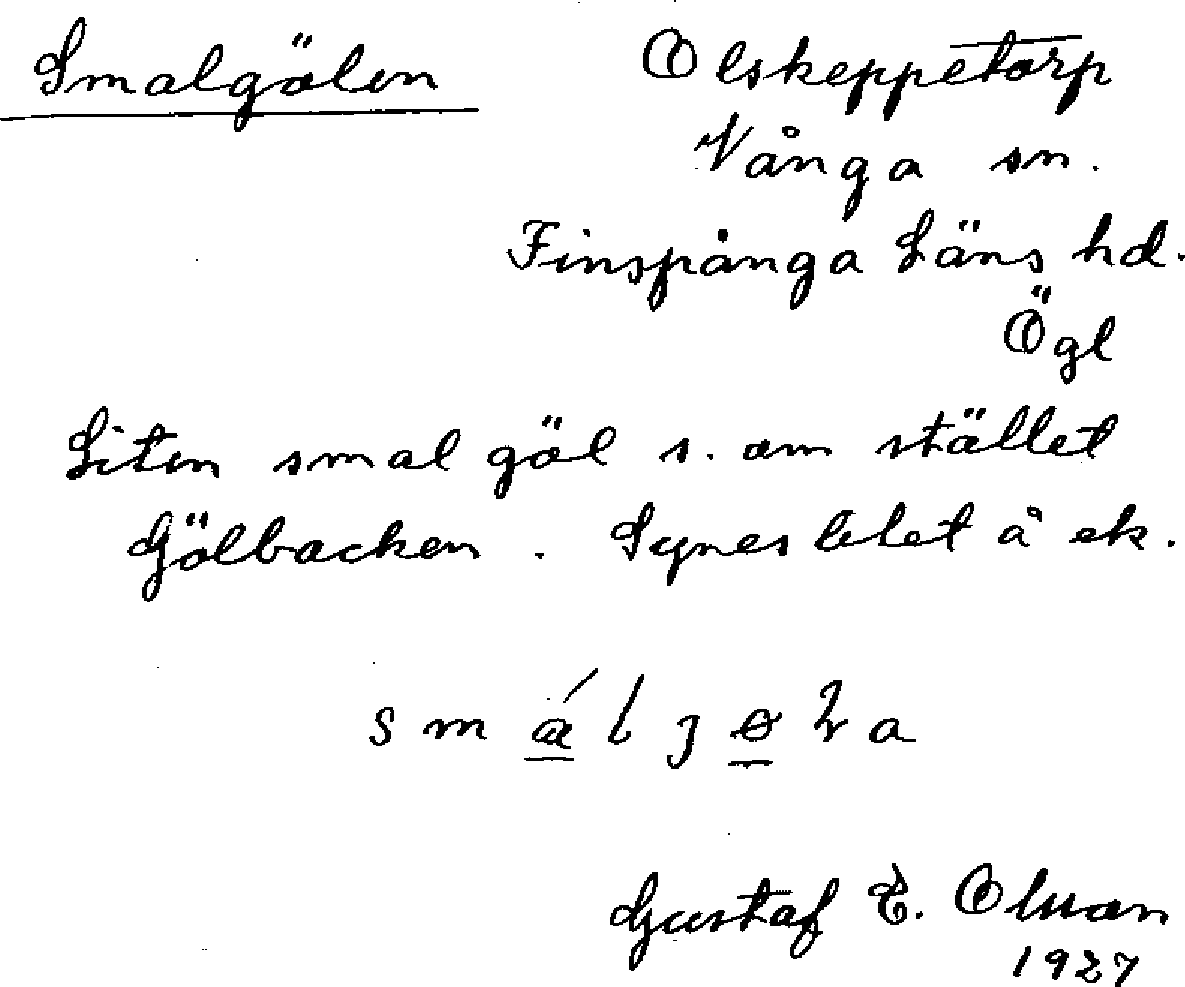 Smalgölen
Olskeppetorp
Vånga sn.
Finspånga Läns hd.
Ögl
Liten smal göl s. om stället
Gölbacken. Synes blet å ek.
Gustaf E. Olsson
1927